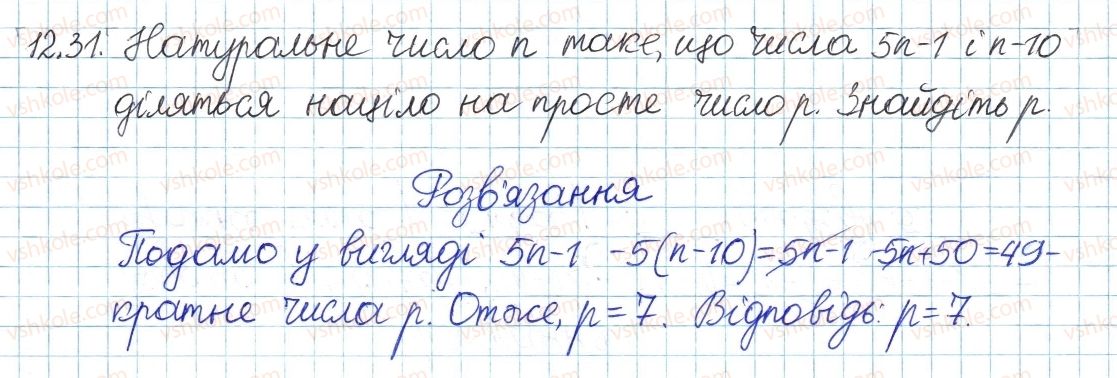 12.31. Натуральне число n таке, що числа 5n-1 і n-10
діляться націло на просте число p. Знайдіть p.
Розв'язання
Подамо у вигляді 5n-1 -5(n-10)=5n-1 -5n+50=49-
кратне числа p. Отже, p=7. Відповідь: p=7.